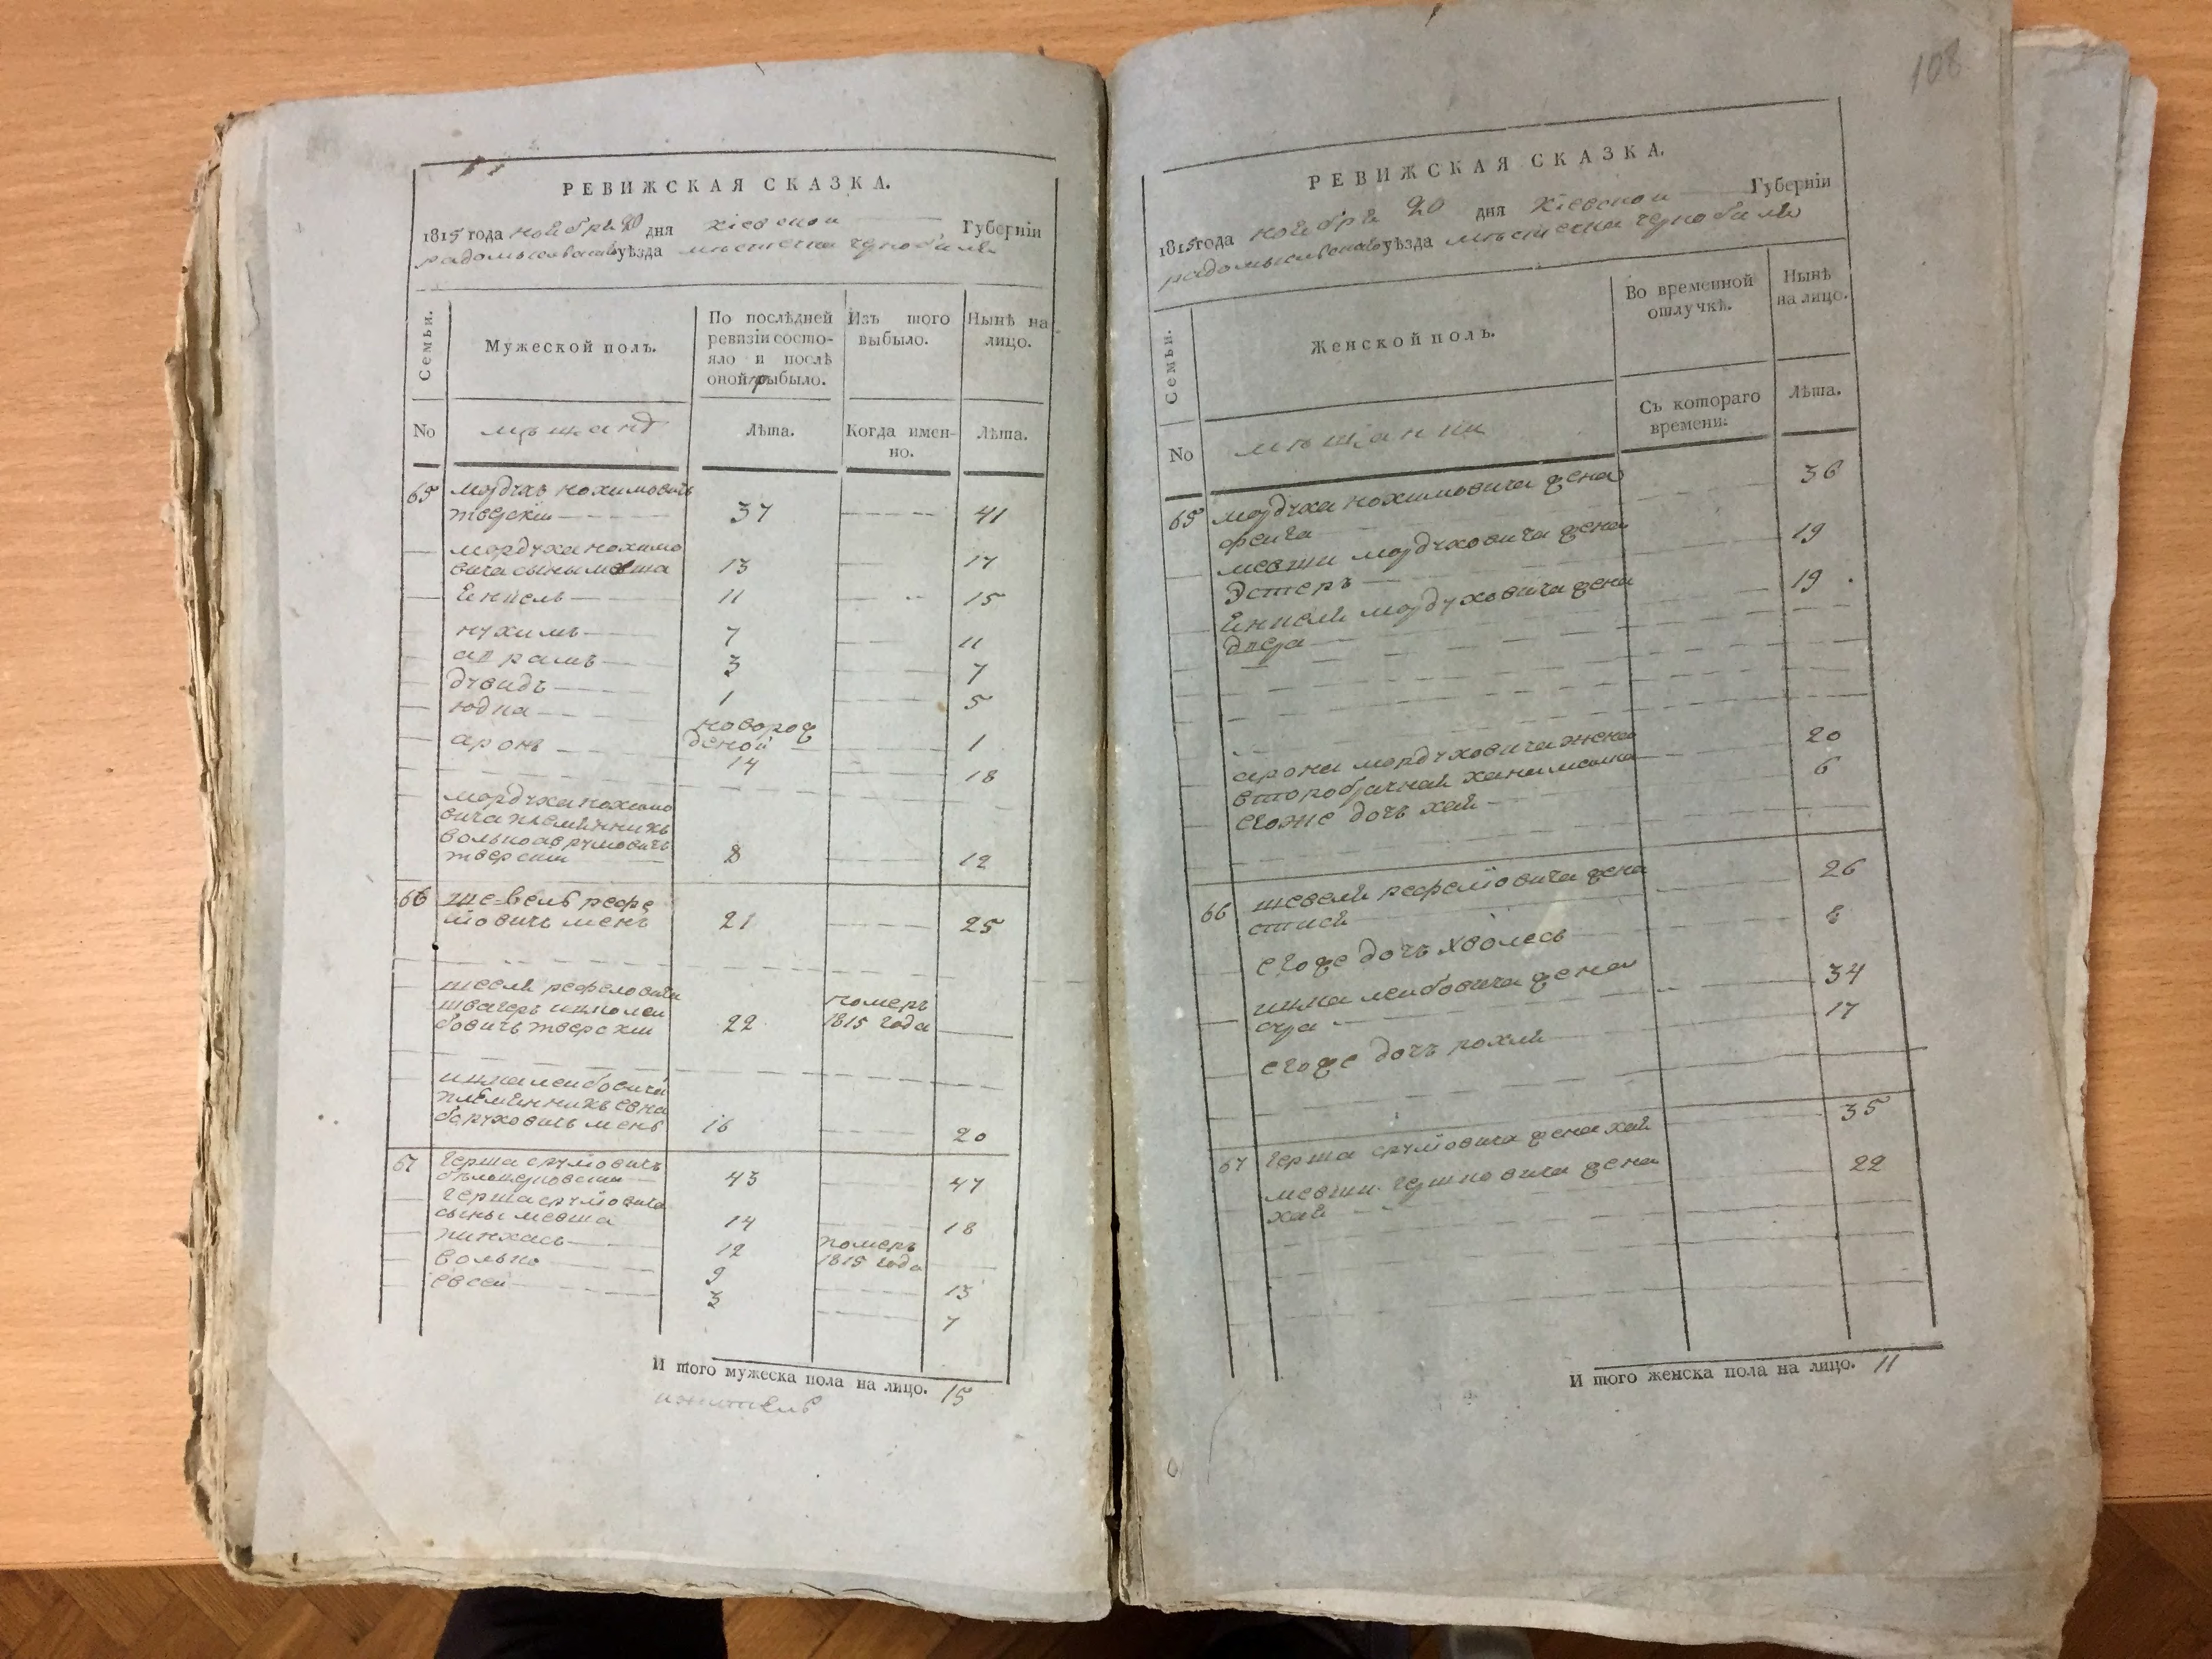 РЕВИЖСКАЯ СКАЗКА.
1815 года ноября 20 дня кіевской Губерніи
радомысльскаго уѣзда мѣстечка чернобиля
Семьи.
Мужеской полъ.
По послѣдней ревизіи состояло и послѣ оной прибыло.
Изъ того выбыло.
Нынѣ на лицо.
No
мѣщанъ
Лѣта.
Когда именно.
Лѣта.
65 мордухъ нохимовичъ
тверскій 37 41
мордуха нохимо
вича сыны мовша 13 17
Енкель 11 15
нухимъ 7 11
аврамъ 3 7
дувидъ 1 5
юдка новорож
деной 1
аронъ 14 18
мордуха нохимо
вича племянникъ
волько аврумовичъ
тверскій 8 12
66 шевель рефе
ловичъ менъ 21 25
шевеля рефеловича
швагеръ ицко леи
бовичъ тверскій 22 померъ
1815 года
ицка леибовича
племянникъ
боруховичъ менъ 16 20
67 герша срулiовичъ
бѣлоцерковскій 43 47
герша срулiовича
сыны мовша 14 18
пинхасъ 12 померъ
1815 года
волько 9 13
евсей 3 7
И того мужеска пола на лицо. 15
108
РЕВИЖСКАЯ СКАЗКА.
1815 года ноября 20 дня кіевской Губерніи
радомысльскаго уѣзда мѣстечка чернобиля
Семьи.
Женской полъ.
Во временной отлучкѣ.
Нынѣ на лицо.
No
мѣщанки
Съ котораго времени:
Лѣта.
65 мордуха нохимовича жена
феига 36
мовши мордуховича жена
Эстеръ 19
Енкеля мордуховича жена
двера 19
арона мордуховича жена
второбрачная ханимолка 20
егоже дочь хая 6
66 шевеля рефелiовича жена
стися 26
егоже дочь хволесь 8
ицка леибовича жена
сура 34
егоже дочь рохля 17
67 герша срулiовича жена хая 35
мовши гершковича жена
хая 22
И того женска пола на лицо. 11